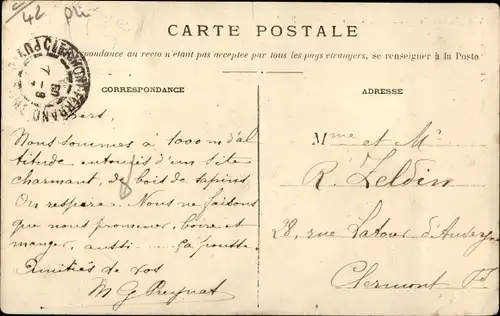 42
CARTE POSTALE
Correspondance au recto n'étant pas acceptée par tous les pays étrangers, se renseigner à la Poste
CORRESPONDANCE
ADRESSE
Nous sommes à 1000 m d'al
titude entourés d'un site
charmant, de bois de sapins
On respire. Nous ne faisons
que nous promener, boire et
manger, aussi ... ça pousse.
Amitiés de vos
M G Preynat
Mme et Mr
R. Zeldin
28, rue Latour d'Auvergne
Clermont Fd